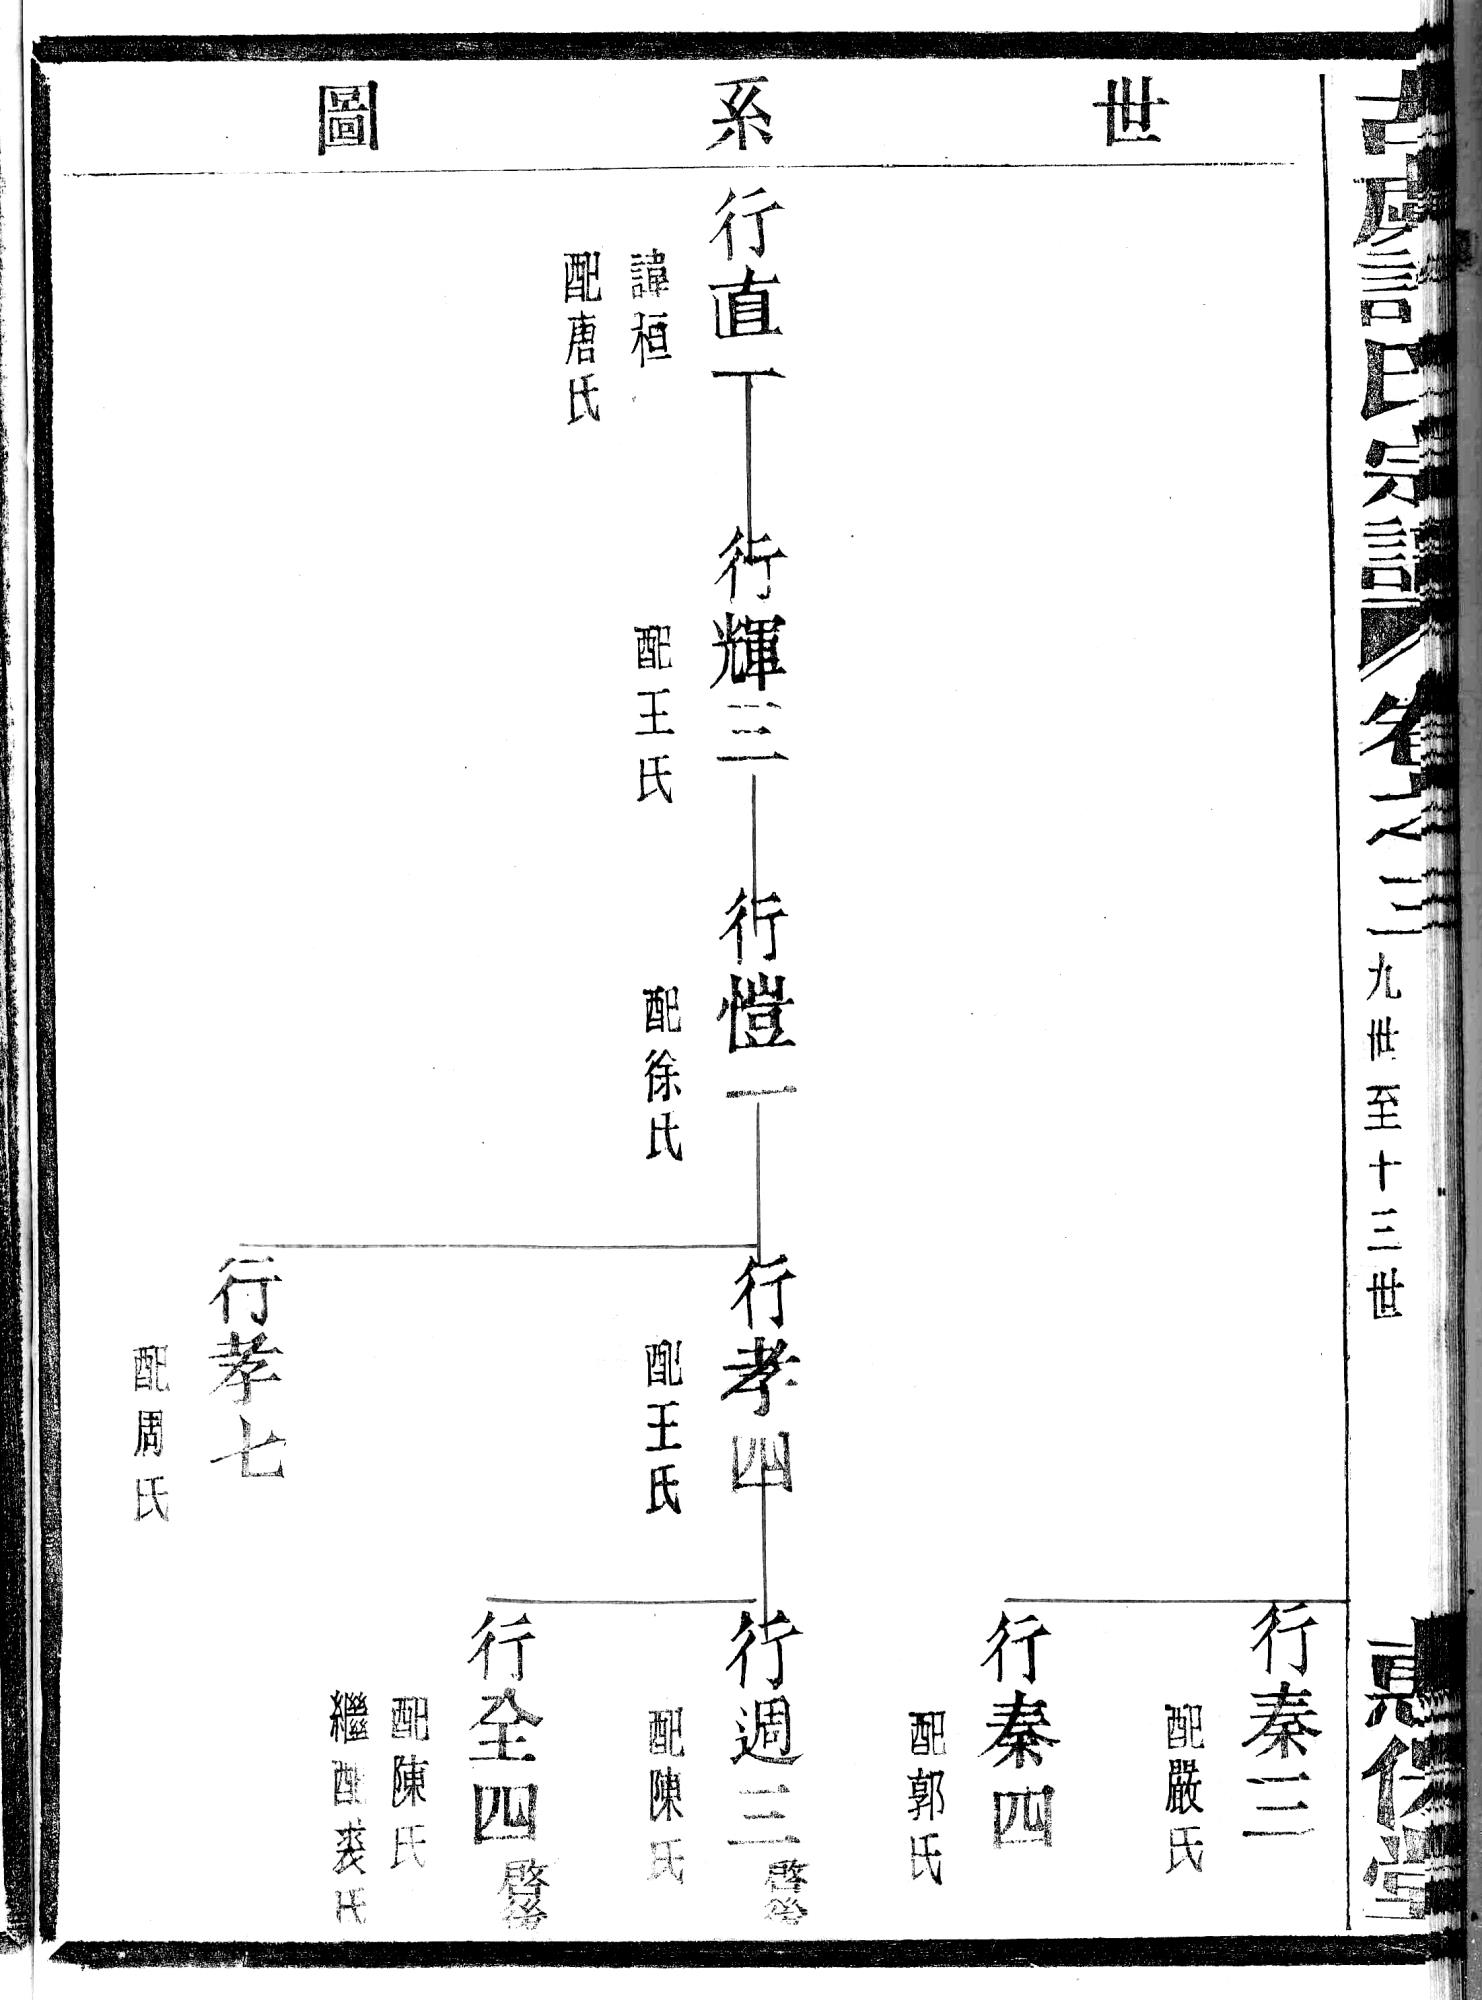 世系圖
氏宗譜
卷之三
九世至十三世
堂
行秦三
配嚴氏
行秦四
配郭氏
行直一
諱桓
配唐氏
行輝三
配王氏
行愷一
配徐氏
行孝四
配王氏
行週三
啓後
配陳氏
行全四
啓後
配陳氏
繼配裘氏
行孝七
配周氏